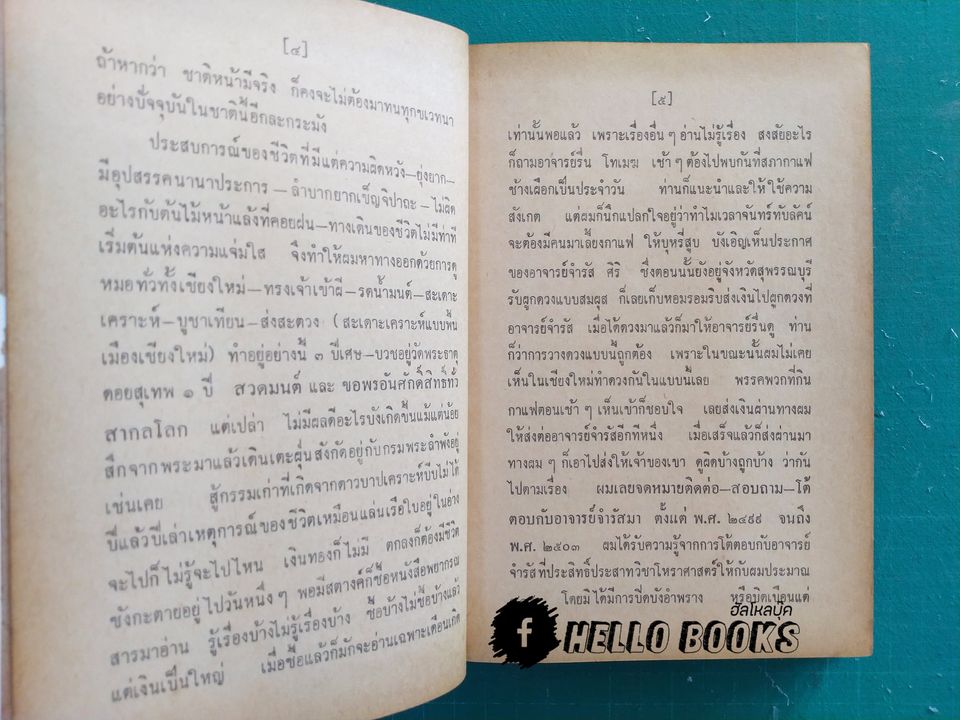 [๔]
ถ้าหากว่า ชาติหน้ามีจริง ก็คงจะไม่ต้องมาทนทุกขเวทนา
อย่างปัจจุบันในชาตินี้อีกละกระมัง
ประสบการณ์ของชีวิตที่มีแต่ความผิดหวัง–ยุ่งยาก–
มีอุปสรรคนานาประการ–ลำบากยากเข็ญจิปาถะ–ไม่ผิด
อะไรกับต้นไม้หน้าแล้งที่คอยฝน–ทางเดินของชีวิตไม่มีท่าที
เริ่มต้นแห่งความแจ่มใส จึงทำให้ผมหาทางออกด้วยการดู
หมอทั่วทั้งเชียงใหม่–ทรงเจ้าเข้าผี–รดน้ำมนต์–สะเดาะ
เคราะห์–บูชาเทียน–ส่งสะตวง (สะเดาะเคราะห์แบบพื้น
เมืองเชียงใหม่) ทำอยู่อย่างนี้ ๓ ปีเศษ–บวชอยู่วัดพระธาตุ
ดอยสุเทพ ๑ ปี สวดมนต์ และ ขอพรอันศักดิ์สิทธิ์ทั่ว
สากลโลก แต่เปล่า ไม่มีผลดีอะไรบังเกิดขึ้นแม้แต่น้อย
สึกจากพระมาแล้วเดินเตะฝุ่นสังกัดอยู่กับกรมพระลำพังอยู่
เช่นเคย สู้กรรมเก่าที่เกิดจากดาวบาปเคราะห์บีบไม่ได้
ปีแล้วปีเล่าเหตุการณ์ของชีวิตเหมือนแล่นเรือใบอยู่ในอ่าง
จะไปก็ไม่รู้จะไปไหน เงินทองก็ไม่มี ตกลงก็ต้องมีชีวิต
ซังกะตายอยู่ไปวันหนึ่งๆ พอมีสตางค์ก็ซื้อหนังสือพยากรณ
สารมาอ่าน รู้เรื่องบ้างไม่รู้เรื่องบ้าง ซื้อบ้างไม่ซื้อบ้างแล้ว
แต่เงินเป็นใหญ่ เมื่อซื้อแล้วก็มักจะอ่านเฉพาะเดือนเกิด
[๕]
เท่านั้นพอแล้ว เพราะเรื่องอื่นๆ อ่านไม่รู้เรื่อง สงสัยอะไร
ก็ถามอาจารย์รื่น โทเมฆ เช้าๆ ต้องไปพบกันที่สภากาแฟ
ช้างเผือกเป็นประจำวัน ท่านก็แนะนำและให้ใช้ความ
สังเกต แต่ผมก็นึกแปลกใจอยู่ว่าทำไมเวลาจันทร์ทับลัคน์
จะต้องมีคนมาเลี้ยงกาแฟ ให้บุหรี่สูบ บังเอิญเห็นประกาศ
ของอาจารย์จำรัส ศิริ ซึ่งตอนนั้นยังอยู่จังหวัดสุพรรณบุรี
รับผูกดวงแบบสมผุส ก็เลยเก็บหอมรอมริบส่งเงินไปผูกดวงที่
อาจารย์จำรัส เมื่อได้ดวงมาแล้วก็มาให้อาจารย์รื่นดู ท่าน
ก็ว่าการวางดวงแบบนี้ถูกต้อง เพราะในขณะนั้นผมไม่เคย
เห็นในเชียงใหม่ทำดวงกันในแบบนี้เลย พรรคพวกที่กิน
กาแฟตอนเช้าๆ เห็นเข้าก็ชอบใจ เลยส่งเงินผ่านทางผม
ให้ส่งต่ออาจารย์จำรัสอีกทีหนึ่ง เมื่อเสร็จแล้วก็ส่งผ่านมา
ทางผมๆ ก็เอาไปส่งให้เจ้าของเขา ดูผิดบ้างถูกบ้าง ว่ากัน
ไปตามเรื่อง ผมเลยจดหมายติดต่อ–สอบถาม–โต้
ตอบกับอาจารย์จำรัสมา ตั้งแต่ พ.ศ. ๒๔๙๙ จนถึง
พ.ศ. ๒๕๐๓ ผมได้รับความรู้จากการโต้ตอบกับอาจารย์
จำรัสที่ประสิทธิ์ประสาทวิชาโหราศาสตร์ให้กับผมประมาณ
โดยมิได้มีการปิดบังอำพราง หรือบิดเบือนแต่
ฮัลโหลบุ๊ค
f HELLO BOOKS